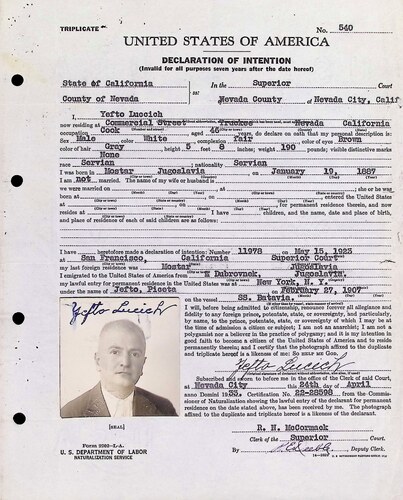 TRIPLICATE
No. 540
UNITED STATES OF AMERICA
DECLARATION OF INTENTION
(Invalid for all purposes seven years after the date hereof)
State of California
County of Nevada
ss:
In the Superior Court
Nevada County of Nevada City, Calif
I, Yefto Luccich
now residing at Commercial Street Truckee Nevada California
occupation Cook aged 46 years, do declare on oath that my personal description is:
Sex Male color White complexion Fair color of eyes Brown
color of hair Gray height 5 feet 8 inches; weight 190 pounds; visible distinctive marks
None
race Servian; nationality Servian
I was born in Mostar Jugoslavia on January 19, 1887
I am not married. The name of my wife or husband is
we were married on at she or he was
born at on entered the United States
at on for permanent residence therein, and now
resides at I have children, and the name, date and place of birth,
and place of residence of each of said children are as follows:
I have heretofore made a declaration of intention: Number 11978 on May 15, 1923
at San Francisco, California Superior Court
my last foreign residence was Mostar Jugoslavia
I emigrated to the United States of America from Dubrovnek, Jugoslavia.
my lawful entry for permanent residence in the United States was at New York, N. Y.
under the name of Jefto, Piceta on February 27, 1907
on the vessel SS. Batavia.
I will, before being admitted to citizenship, renounce forever all allegiance and
fidelity to any foreign prince, potentate, state, or sovereignty, and particularly,
by name, to the prince, potentate, state, or sovereignty of which I may be at the
time of admission a citizen or subject; I am not an anarchist; I am not a
polygamist nor a believer in the practice of polygamy; and it is my intention in
good faith to become a citizen of the United States of America and to reside
permanently therein; and I certify that the photograph affixed to the duplicate
and triplicate hereof is a likeness of me: SO HELP ME GOD.
Yefto Lucich
Yefto Lucich
Subscribed and sworn to before me in the office of the Clerk of said Court,
at Nevada City this 24th day of April
anno Domini 1933. Certification No. 22-28598 from the Commissioner
of Naturalization showing the lawful entry of the declarant for permanent
residence on the date stated above, has been received by me. The photograph
affixed to the duplicate and triplicate hereof is a likeness of the declarant.
R. N. McCormack
Clerk of the Superior Court.
By Deputy Clerk.
[SEAL]
Form 2202-L-A.
U. S. DEPARTMENT OF LABOR
NATURALIZATION SERVICE